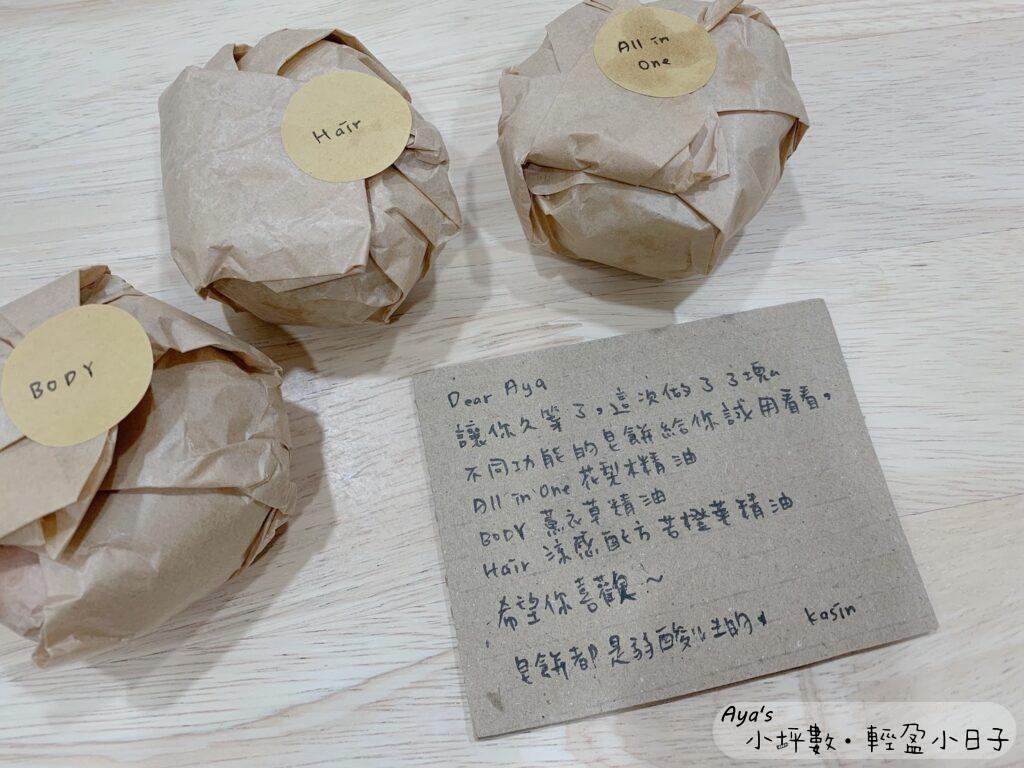 Hair
All in
One
BODY
Dear Aya
讓你久等了。這次做了3塊
不同功能的皂餅給你試用看看。
All in One 花梨木精油
BODY 薰衣草精油
Hair 涼感配方苦橙葉精油
希望你喜歡~
皂餅都是弱酸性的。
kasin
Aya's
小坪數・輕盈小日子